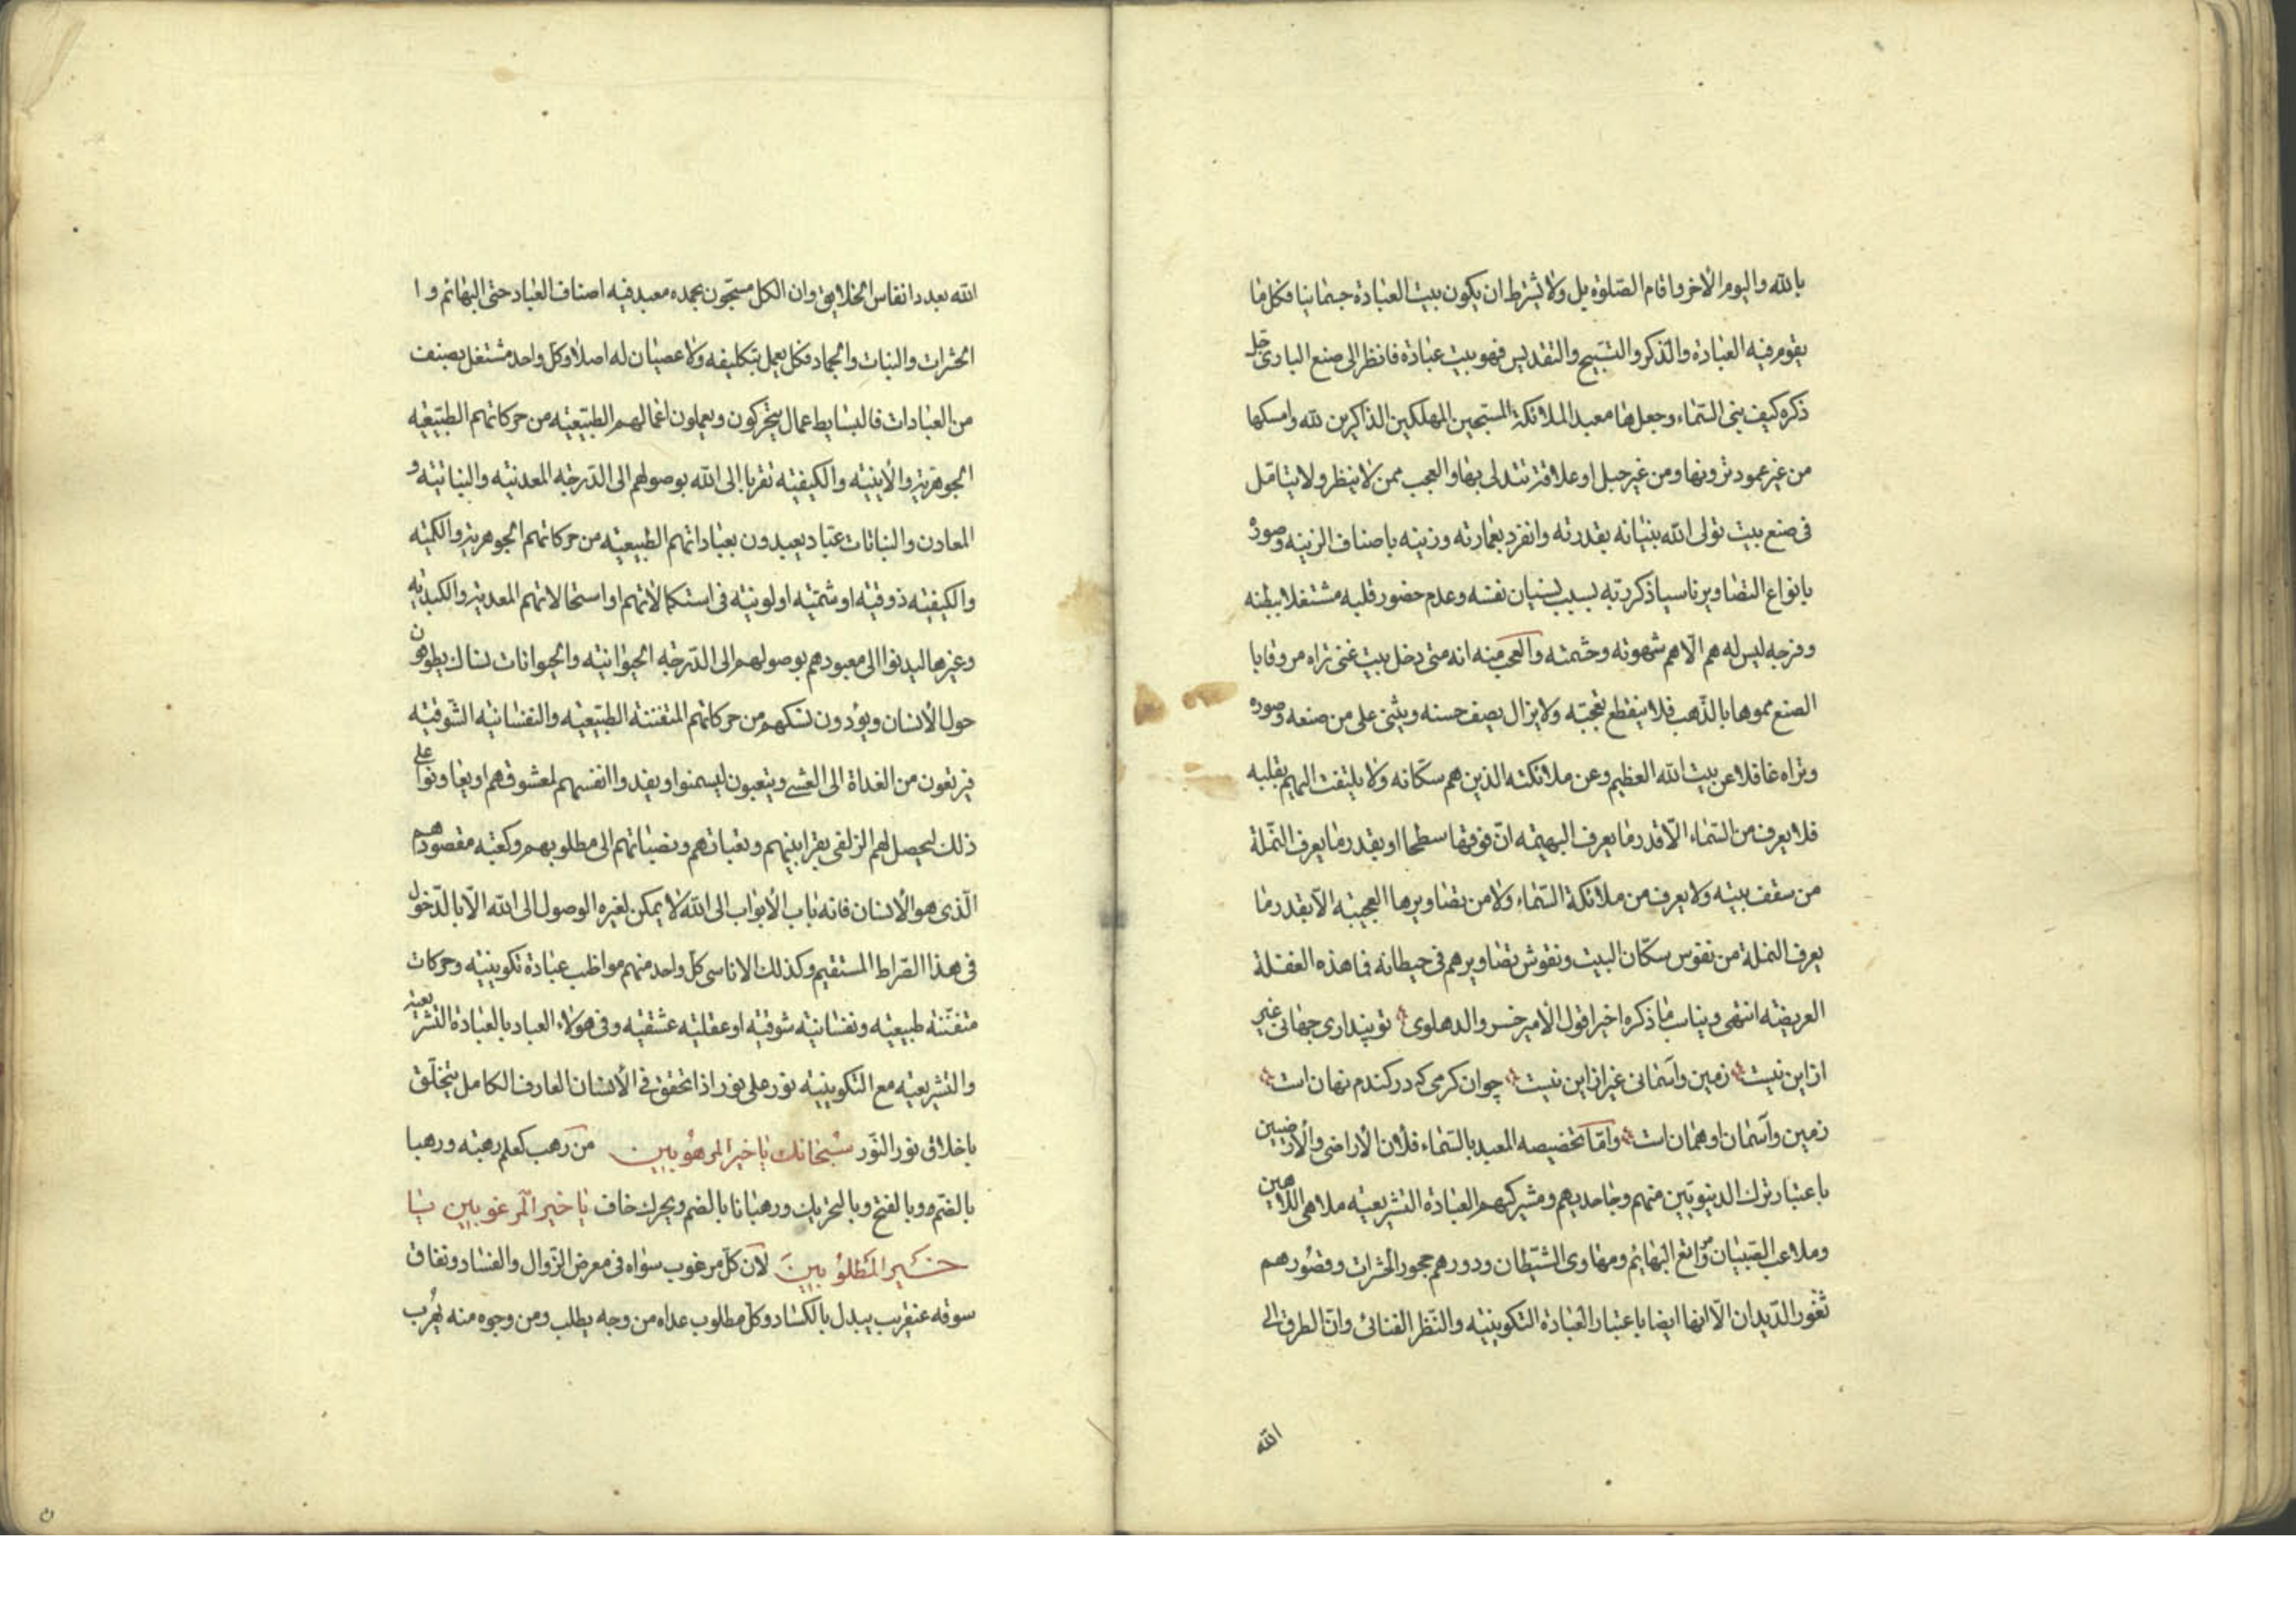 بالله واليوم الأخر واقام الصّلوة بل ولا يشترط ان يكون بيت العبادة جسمانيا فكل ما
يقوم فيه العبادة والذكر والتسبيح والتقديس فهو بيت عبادة فانظر الى صنع البارى جل
ذكره كيف بنى السّماء وجعلها معبد الملائكة المسبّحين المهلّلين الذاكرين لله وامسكها
من غير عمود ترونها ومن غير حبل او علاقة تتدلى بها والعجب ممن لا ينظر ولا يتامّل
فى صنع بيت تولى الله بنيانه بقدرته وانفرد بعمارته وزينه باصناف الزينه وصوره
بانواع التصاوير ناسيا ذكر ربّه بسبب نسيان نفسه وعدم حضور قلبه مشتغلا ببطنه
وفرجه ليس له همّ الّا همّ شهوته وحشمته والعجب منه انه متى دخل بيت غنى تراه مروقا با
الصبغ مموها بالذّهب فلا ينقطع تعجّبه ولا يزال يصف حسنه ويثنى على من صنعه وصوره
وتراه غافلا عن بيت الله العظيم وعن ملائكته الذين هم سكّانه ولا يلتفت اليهم بقلبه
فلا يعرف من السّماء الّا قدر ما يعرف البهيمه انّ فوقها سطحا او بقدر ما يعرف النّملة
من سقف بيته ولا يعرف من ملائكة السّماء ولا من تصاويرها العجيبه الّا بقدر ما
يعرف النملة من نفوس سكّان البيت ونقوش تصاويرهم فى حيطانه فما هذه الغفلة
العريضه انتهى ويناسب ما ذكره اخيرا قول الأمير خسرو الدهلوى تو پندارى جهانى غير
از اين نيست زمين وآسمانى غير از اين نيست چو ان كرمى كه در كندم نهان است
زمين وآسمان او همان است وامّا تخصيصه المعبد بالسّماء فلأن الأراضى والأرضيين
باعتبار ترك الدنيويّين منهم وجاحديهم ومشركيهم العبادة التشريعيّه ملاهى اللّاهين
وملاعب الصّبيان ومراتع البهايم ومهاوى الشّيطان ودورهم جحور الحشرات وقصورهم
ثغور الدّيدان الّا انها ايضا باعتبار العبادة التكوينيّه والنّظر الفنائى وانّ الطرق الى
الله
الله بعدد انفاس الخلايق وان الكل مسبّحون بحمده معبد فيه اصناف العباد حتى البهائم وا
الحشرات والنبات والجماد فكل يعمل بتكليفه ولا عصيان له اصلا وكلّ واحد مشتغل بصنف
من العبادات فالبسايط عمال يتحركون ويعملون اعمالهم الطبّيعيّه من حركاتهم الطبّيعيّه
الجوهريّة والأينيّه والكيفيّه تقربا الى الله بوصولهم الى الدّرجة المعدنيّه والنباتيّه و
المعادن والنباتات عبّاد يعبدون بعباداتهم الطبيعيّه من حركاتهم الجوهريّة والكميّه
والكيفيّه ذوقيّه او شميّه او لونيّه فى استكمالاتهم او استحالاتهم المعديّة والكبديّه
وغيرها ليدنوا الى معبودهم بوصولهم الى الدّرجة الحيوانيّه والحيوانات نسّاك يطوفون
حول الأنسان ويؤدون نسكهم من حركاتهم المتفننة الطبّيعيّه والنفسانيّه الشّوقيّه
فيرتعون من الغداة الى العشى ويتعبون ليسمنوا ويفدوا انفسهم لمعشوقهم او يعاونوا على
ذلك ليحصل لهم الزلفى بقرابينهم وتعباتهم ونصباتهم الى مطلوبهم وكعبة مقصودهم
الّذى هو الأنسان فانه باب الأبواب الى الله لا يمكن لغيره الوصول الى الله الّا بالدّخول
فى هذا الصّراط المستقيم وكذلك الاناسى كل واحد منهم مواظب عبادة تكوينيّه وحركات
متفنّنة طبيعيّه ونفسانيّه شوقيّه او عقليّه عشقيّه وفى هؤلاء العباد بالعبادة التشريعيّة
والتشريعيّه مع التكوينيّه نور على نور اذا تحقق فى الأنسان العارف الكامل يتخلّق
باخلاق نور النّور سُبحانك يا خير المرهُوبين من رهب كعلم رهبة ورهبا
بالضّم وبالفتح وبالتحريك ورهبانا بالضم ويحرك خاف يا خير المرغوبين يا
خير المَطلُوبينَ لأن كلّ مرغوب سواه فى معرض الزّوال والفساد ونفاق
سوقه عنقريب يبدل بالكساد وكلّ مطلوب عداه من وجه يطلب ومن وجوه منه يُهرب